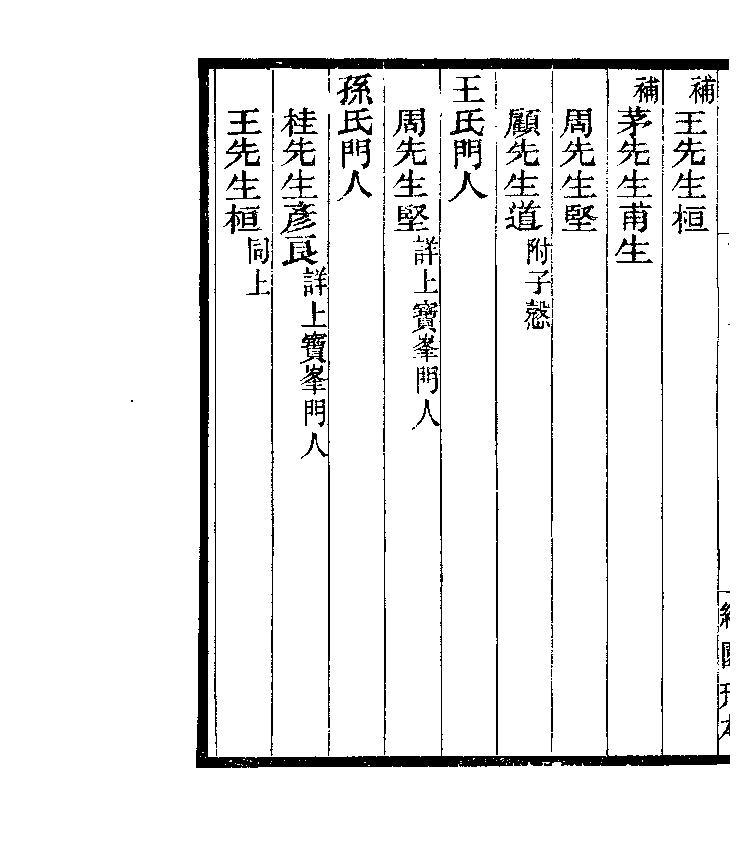 補王先生桓
補茅先生甫生
周先生堅
顧先生道附子愨
王氏門人
周先生堅詳上寶峯門人
孫氏門人
桂先生彥良詳上寶峯門人
王先生桓同上